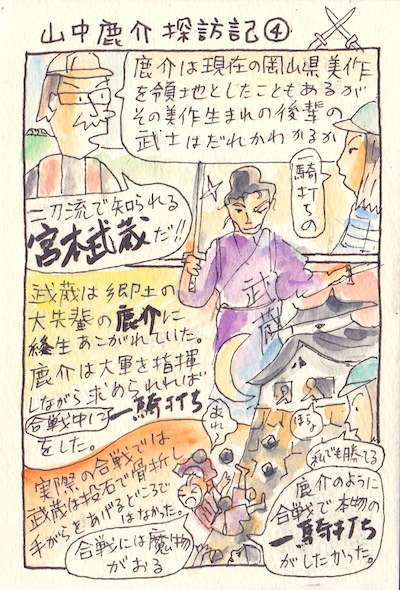 山中鹿介探訪記④
鹿介は現在の岡山県美作
を領地としたこともあるが
その美作生まれの後輩の
武士はだれかわかるか
一騎打ちの
二刀流で知られる
宮本武蔵だ!!
武蔵
武蔵は郷土の
大先輩の鹿介に
終生あこがれていた。
鹿介は大軍を指揮
しながら求められれば
合戦中に一騎打ち
をした。
あれ
ほらよ
私でも勝てる
実際の合戦では
武蔵は投石で骨折し
手がらをあげるどころで
はなかった。
合戦には魔物
がおる
鹿介のように
合戦で本物の
一騎打ち
がしたかった。